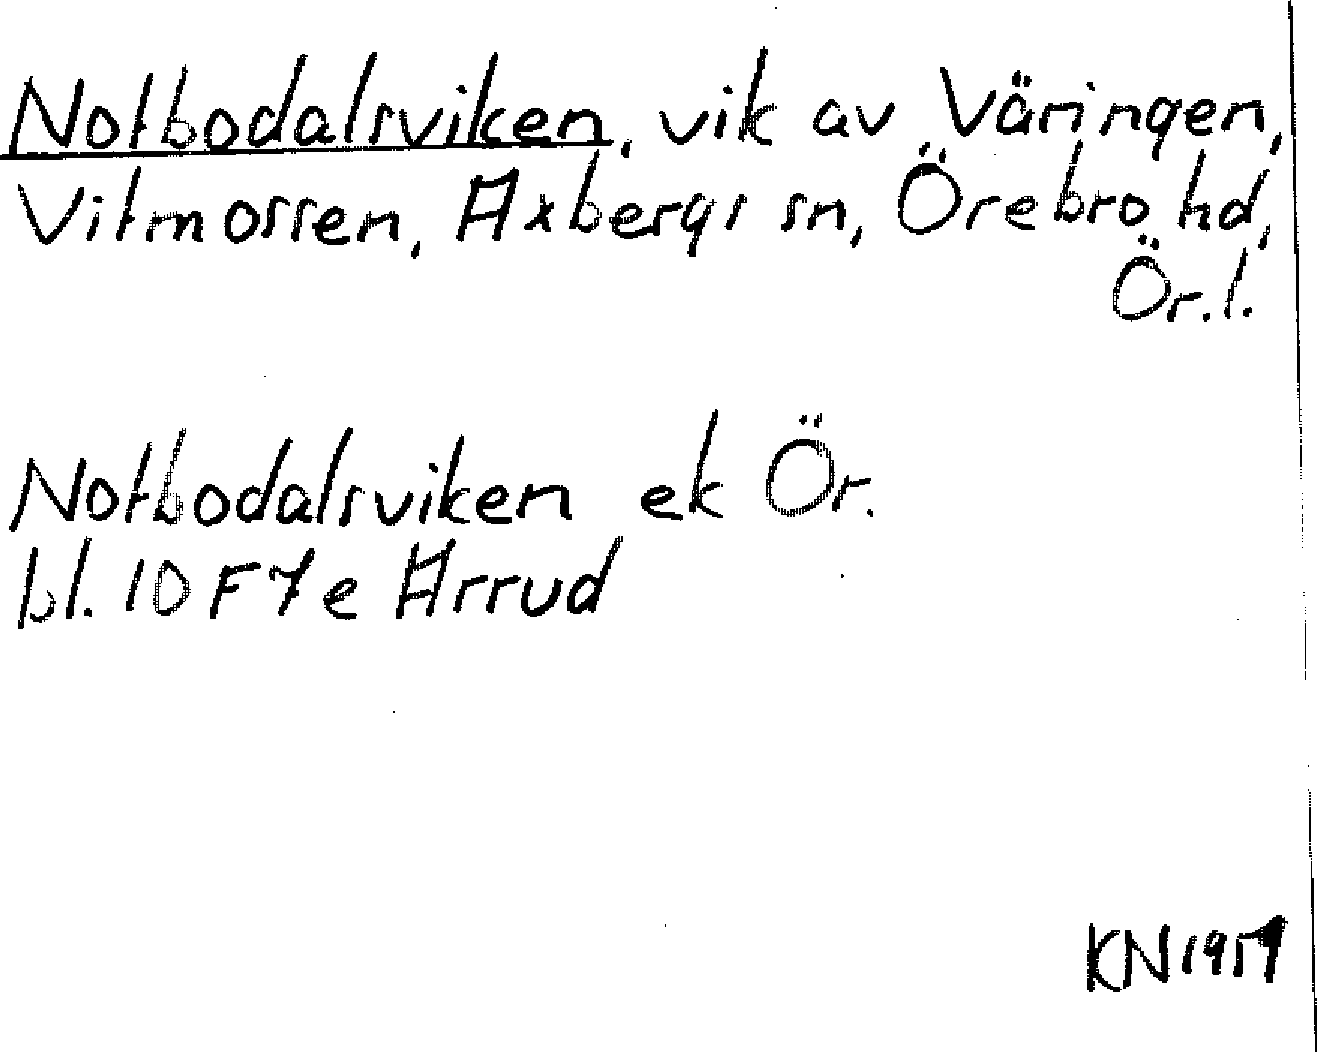 Notbodalsviken, vik av Väringen,
Vitmossen, Axbergs sn, Örebro hd,
Ör.l.
Notbodalsviken ek Ör.
bl. 10F7e Arrud